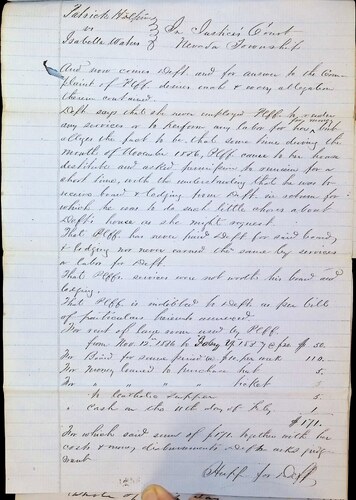 Patrick Halpin
vs
Isabella Waters
In Justices Court
Nevada Township
And now comes Deft. and for answer to the Com-
plaint of Plff. denies each & every allegation
therein contained.
Deft says that she never employed Plff. to render
any services or to perform any labor for her for money but
alleges the fact to be, that some time during the
month of November 1886, Plff came to her house
destitute and asked permission to remain for a
short time, with the understanding that he was to
receive board & lodging from Deft. in return for
which he was to do such little chores about
Defts house as she might request.
That Plff. has never paid Deft for said board
& lodging nor never earned the same by services
or labor for Deft.
That Plffs services were not worth his board and
lodging.
That Plff is indebted to Deft as per bill
of particulars hereunto annexed
For rent of large room used by Plff.
from Nov 15th 1886 to 1887 @ per $ 50.
For Board for same period @ per week 110.
For Money loaned to purchase hat 5.
For " " " " ticket 5.
" Catholic Supper 5.
" cash on the 11th day of Feby. 1.
$171.
For which said sum of $171. together with her
costs & disbursements Deft. asks judg-
ment
Hupp for Deft